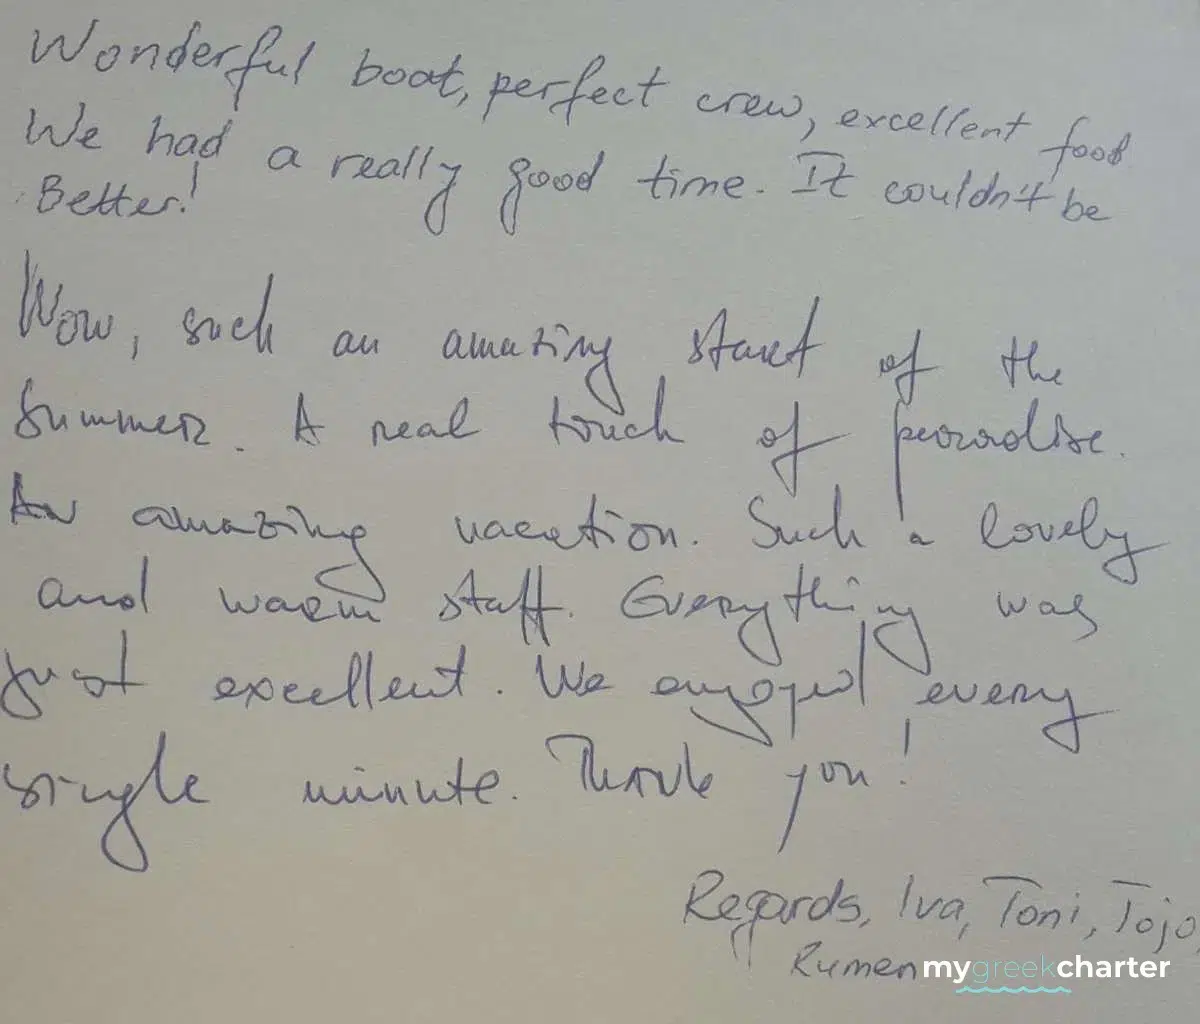 Wonderful boat, perfect crew, excellent food
We had a really good time. It couldn't be
Better!
Wow, such an amazing start of the
summer. A real touch of paradise.
An amazing vacation. Such a lovely
and warm staff. Everything was
just excellent. We enjoyed every
single minute. Thank you!
Regards, Iva, Toni, Tojo,
Rumen
mygreekcharter